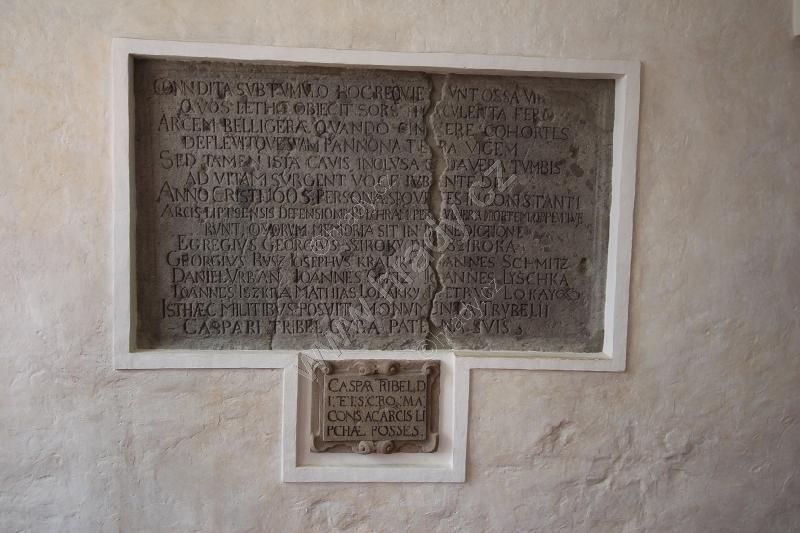 CONDITA SUB TUMULO HOC REQUIE UNT OSSA VIR
QVOS LETHO OBIECIT SORS TR CULENTA FERO
ARCEM BELLIGERÆ QUANDO CIN ERE COHORTES
DEFLEVITQVE SUUM PANNONA TE RA VIGEM
SED TAMEN ISTA CAVIS INCLVSA CADAVERA TVMBIS
AD VITAM SURGENT VOCE IUBENTE D
ANNO CRISTI 1605 PERSONÆ IN CONSTANTI
ARCIS LIPTSENSIS DEFENSIONE MORTEM OPPETIVE
RUNT, QVORUM MEMORIA SIT IN BENEDICTIONE
EGREGIUS GEORGIUS SZIROKY DE SZIROKA
GEORGIUS RUSZ IOSEPHUS KRALIK IOANNES SCHMITZ
DANIEL URBAN, IOANNES IOANNES LYSCHKA
IOANNES ISZKILA MATHIAS PETRUS LOKAY
ISTHÆC MILITIBUS POSUIT MONUMENTA TRUBELII
CASPARI TRIBEL CURA PATENA SUIS
CASPAR TRIBEL D
I. E. I. S. C. RO. MA
CONS. AC ARCIS LI
PCHÆ POSSES.
www.hrady.cz
www.hrady.cz